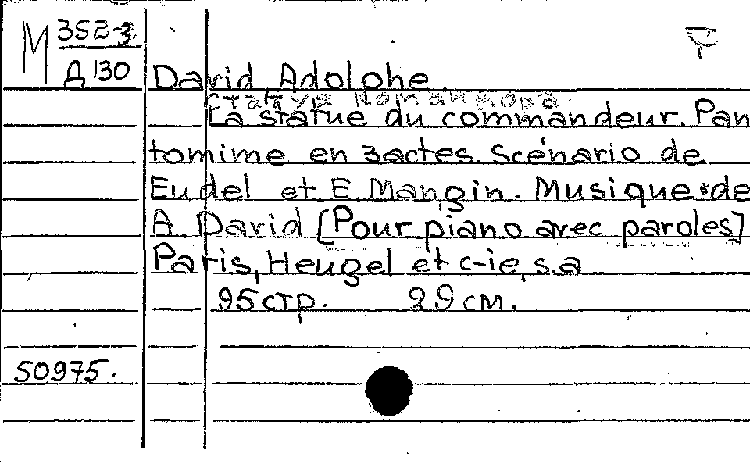 M 3523-3
Д 130
David Adolphe
Статуя Командора
La statue du commandeur. Pan
tomime en 3 actes. Scénario de
Eudel et E. Mangin. Musique de
A. David [Pour piano avec paroles]
Paris, Heugel et c-ie, s.a
95 стр. 29 см.
50975.